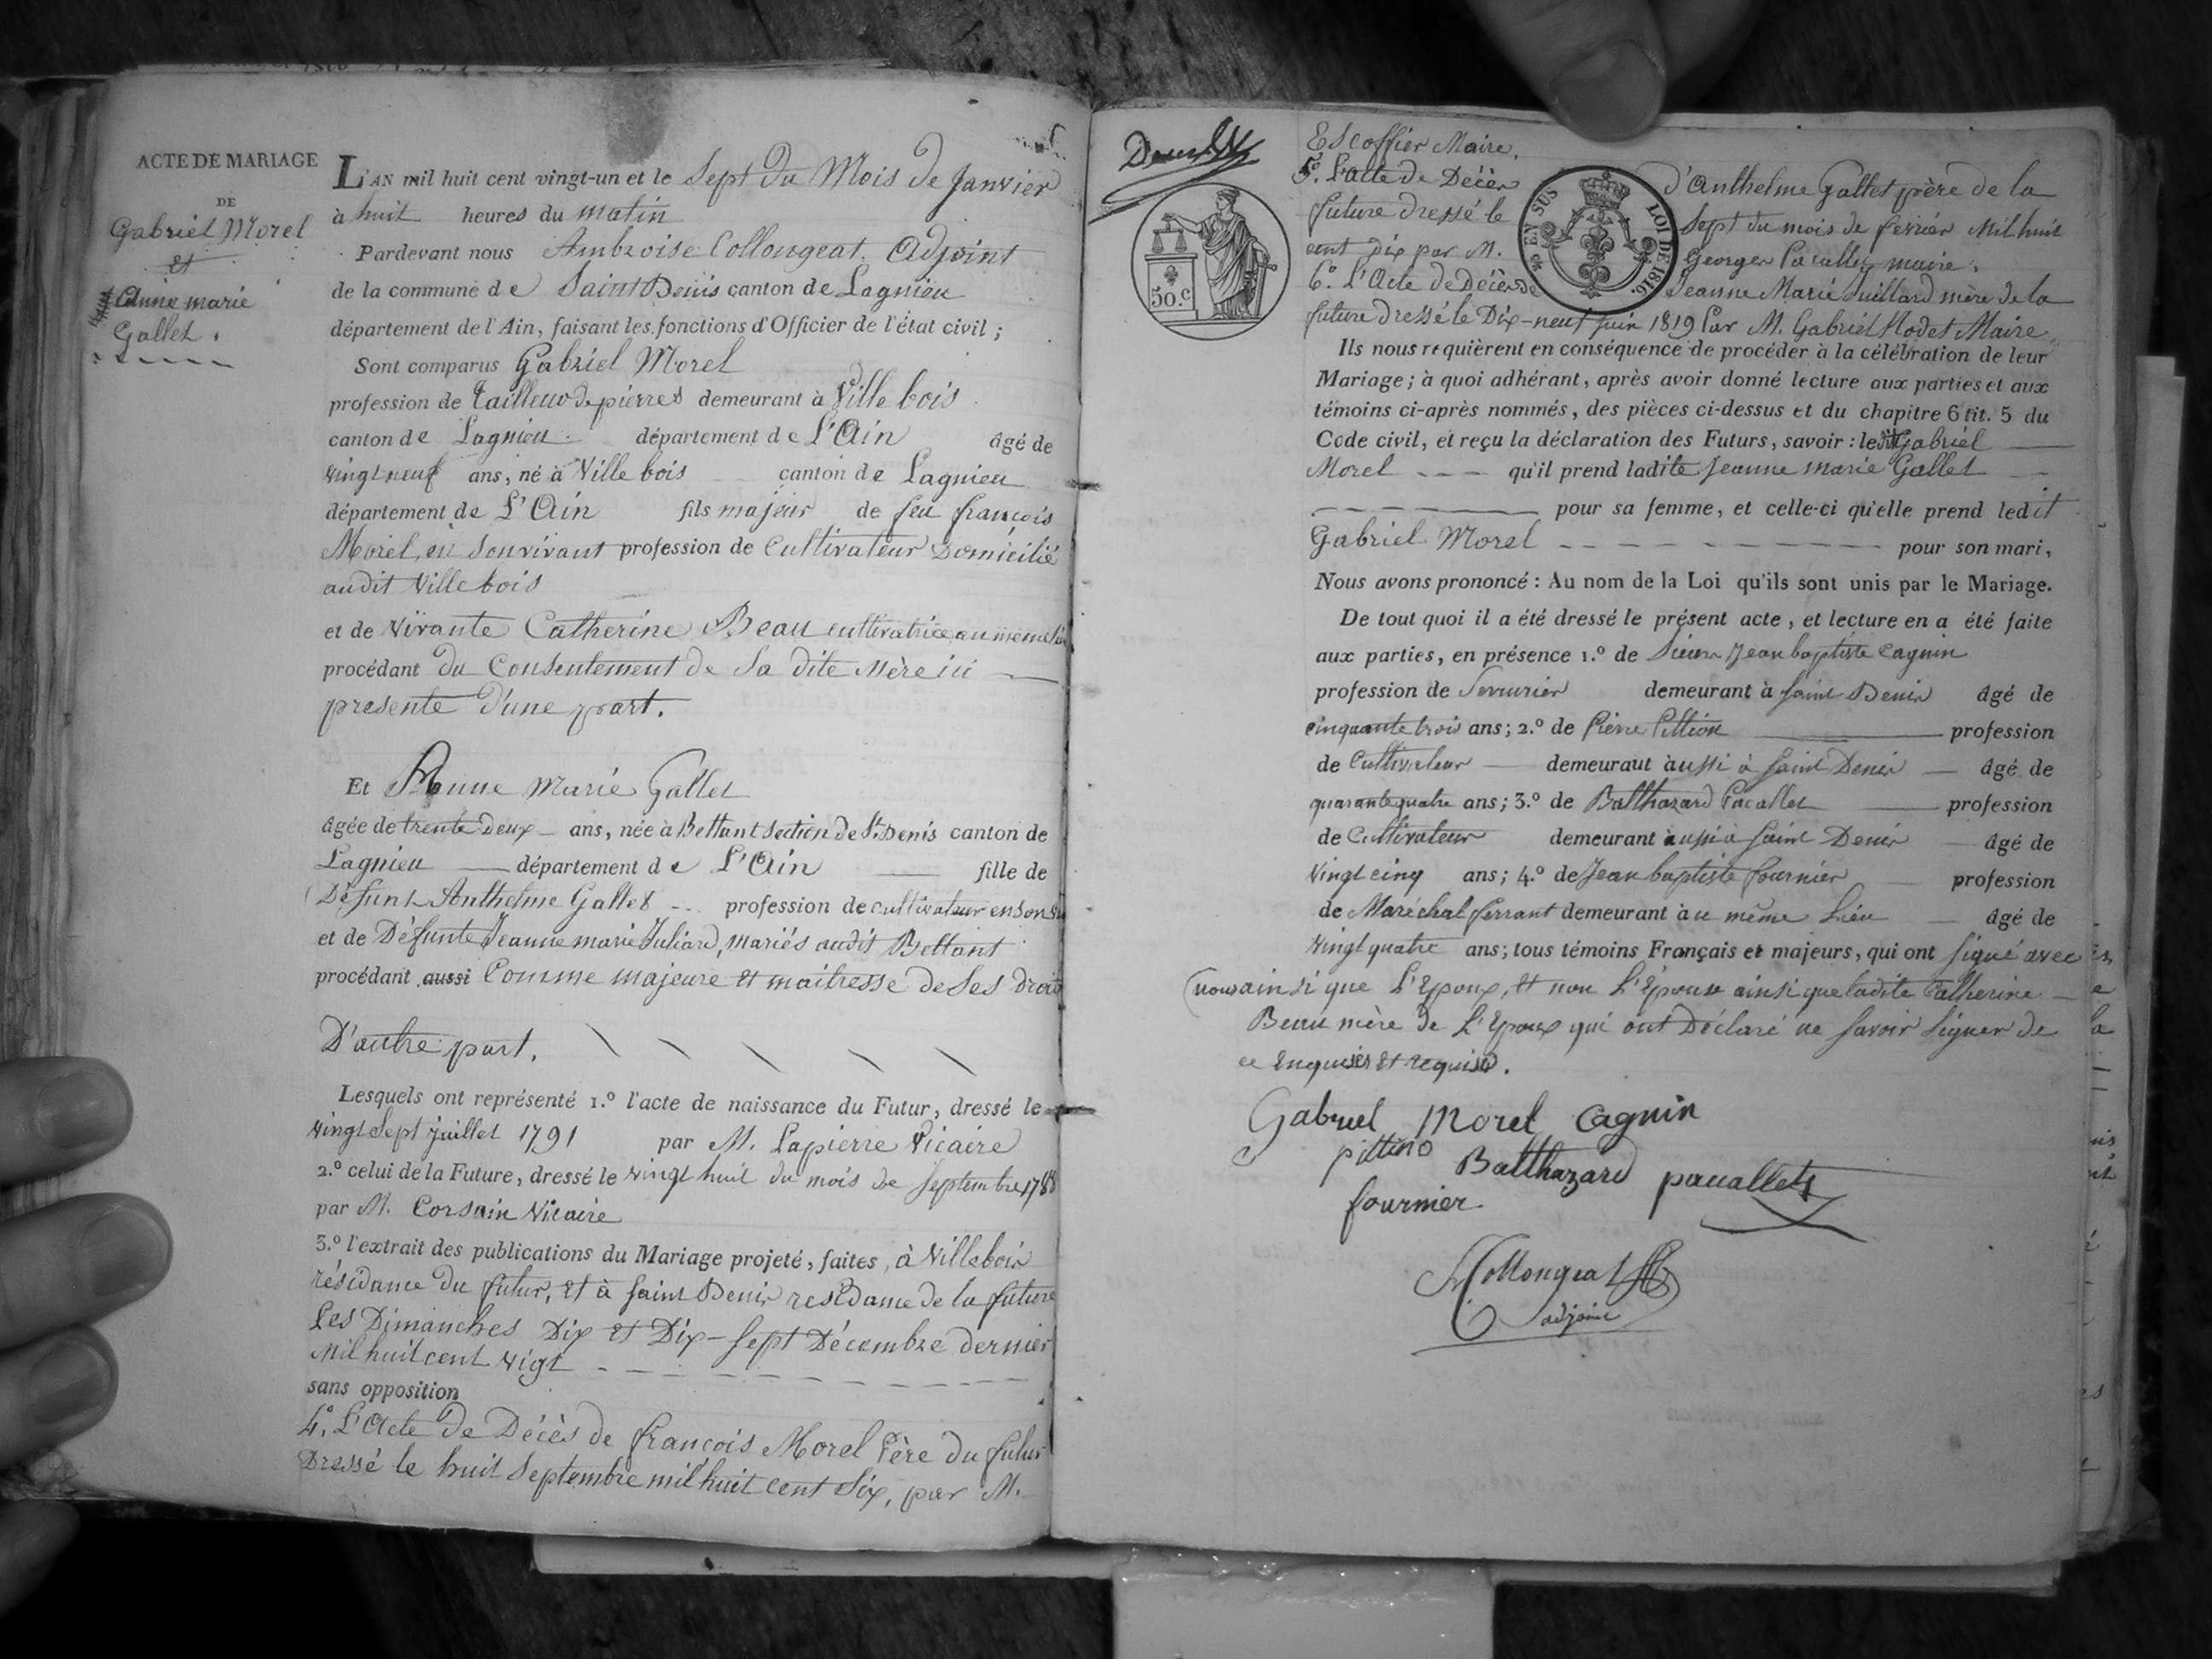 ACTE DE MARIAGE
DE
Gabriel Morel
et
Anne marie
Gallet.
L'AN mil huit cent vingt-un et le Sept du Mois de Janvier
à huit heures du matin
Pardevant nous Ambroise Collongeat, Adjoint
de la commune de Saint Denis canton de Lagnieu
département de l'Ain, faisant les fonctions d'Officier de l'état civil;
Sont comparus Gabriel Morel
profession de tailleur de pierres demeurant à Ville bois
canton de Lagnieu département de L'Ain âgé de
vingt neuf ans, né à Ville bois canton de Lagnieu
département de L'Ain fils majeur de feu françois
Morel, en Sonvivant profession de Cultivateur Domicilié
audit Ville bois
et de Vivante Catherine Beau cultivatrice au même
procédant du Consentement de Sa dite Mère ici
presente d'une part.
Et Anne Marie Gallet
âgée de trente Deux ans, née à Bettant Section de St. Denis canton de
Lagnieu département de L'Ain fille de
Défunt Anthelme Gallet profession de cultivateur en son
et de Défunte Jeanne marie Juliard, mariés audit Bettant
procédant aussi Comme majeure et maitresse de Ses droit
D'autre part.
Lesquels ont représenté 1.º l'acte de naissance du Futur, dressé le
vingt Sept juillet 1791 par M. Lapierre Vicaire
2.º celui de la Future, dressé le vingt huit du mois de Septembre 1788
par M. Corsain Vicaire
3.º l'extrait des publications du Mariage projeté, faites, à Villebois
résidance du futur, et à Saint Denis residance de la future
Les Dimanches Dix et Dix-Sept Décembre dernier
Mil huit cent vigt
sans opposition
4.º L'Acte de Décès de françois Morel Père du futur
Dressé le huit Septembre mil huit cent Six, par M.
Escoffier Maire.
5.º L'acte de Décès d'Anthelme Gallet père de la
future dressé le Sept du mois de fevrier Mil huit
cent dix par M. Georges Pacallet maire.
6.º L'Acte de Décès de Jeanne Marie Juillard mère de la
future dressé le Dix-neuf Juin 1819 Par M. Gabriel Modet Maire
50.c
EN SUS
LOI DE 1816.
Ils nous requièrent en conséquence de procéder à la célébration de leur
Mariage; à quoi adhérant, après avoir donné lecture aux parties et aux
témoins ci-après nommés, des pièces ci-dessus et du chapitre 6 tit. 5 du
Code civil, et reçu la déclaration des Futurs, savoir: ledit Gabriel
Morel qu'il prend ladite Jeanne Marie Gallet
pour sa femme, et celle-ci qu'elle prend ledit
Gabriel Morel pour son mari,
Nous avons prononcé: Au nom de la Loi qu'ils sont unis par le Mariage.
De tout quoi il a été dressé le présent acte, et lecture en a été faite
aux parties, en présence 1.º de Sieurs Jean baptiste Cagnin
profession de Serrurier demeurant à Saint Denis âgé de
cinquante trois ans; 2.º de Pierre Pittion profession
de Cultivateur demeurant aussi à Saint Denis âgé de
quarante quatre ans; 3.º de Balthazard Pacallet profession
de Cultivateur demeurant aussi à Saint Denis âgé de
Vingt cinq ans; 4.º de Jean baptiste fournier profession
de Maréchal ferrant demeurant au même Lieu âgé de
vingt quatre ans; tous témoins Français et majeurs, qui ont signé avec
nous ainsi que L'Epoux, et non L'Épouse ainsi que ladite Catherine
Beau mère de L'Epoux qui ont Déclaré ne Savoir Signer de
ce Enquises et requises.
Gabriel Morel Cagnin
pittino Balthazard pacallet
fournier
Collongeat
adjoint